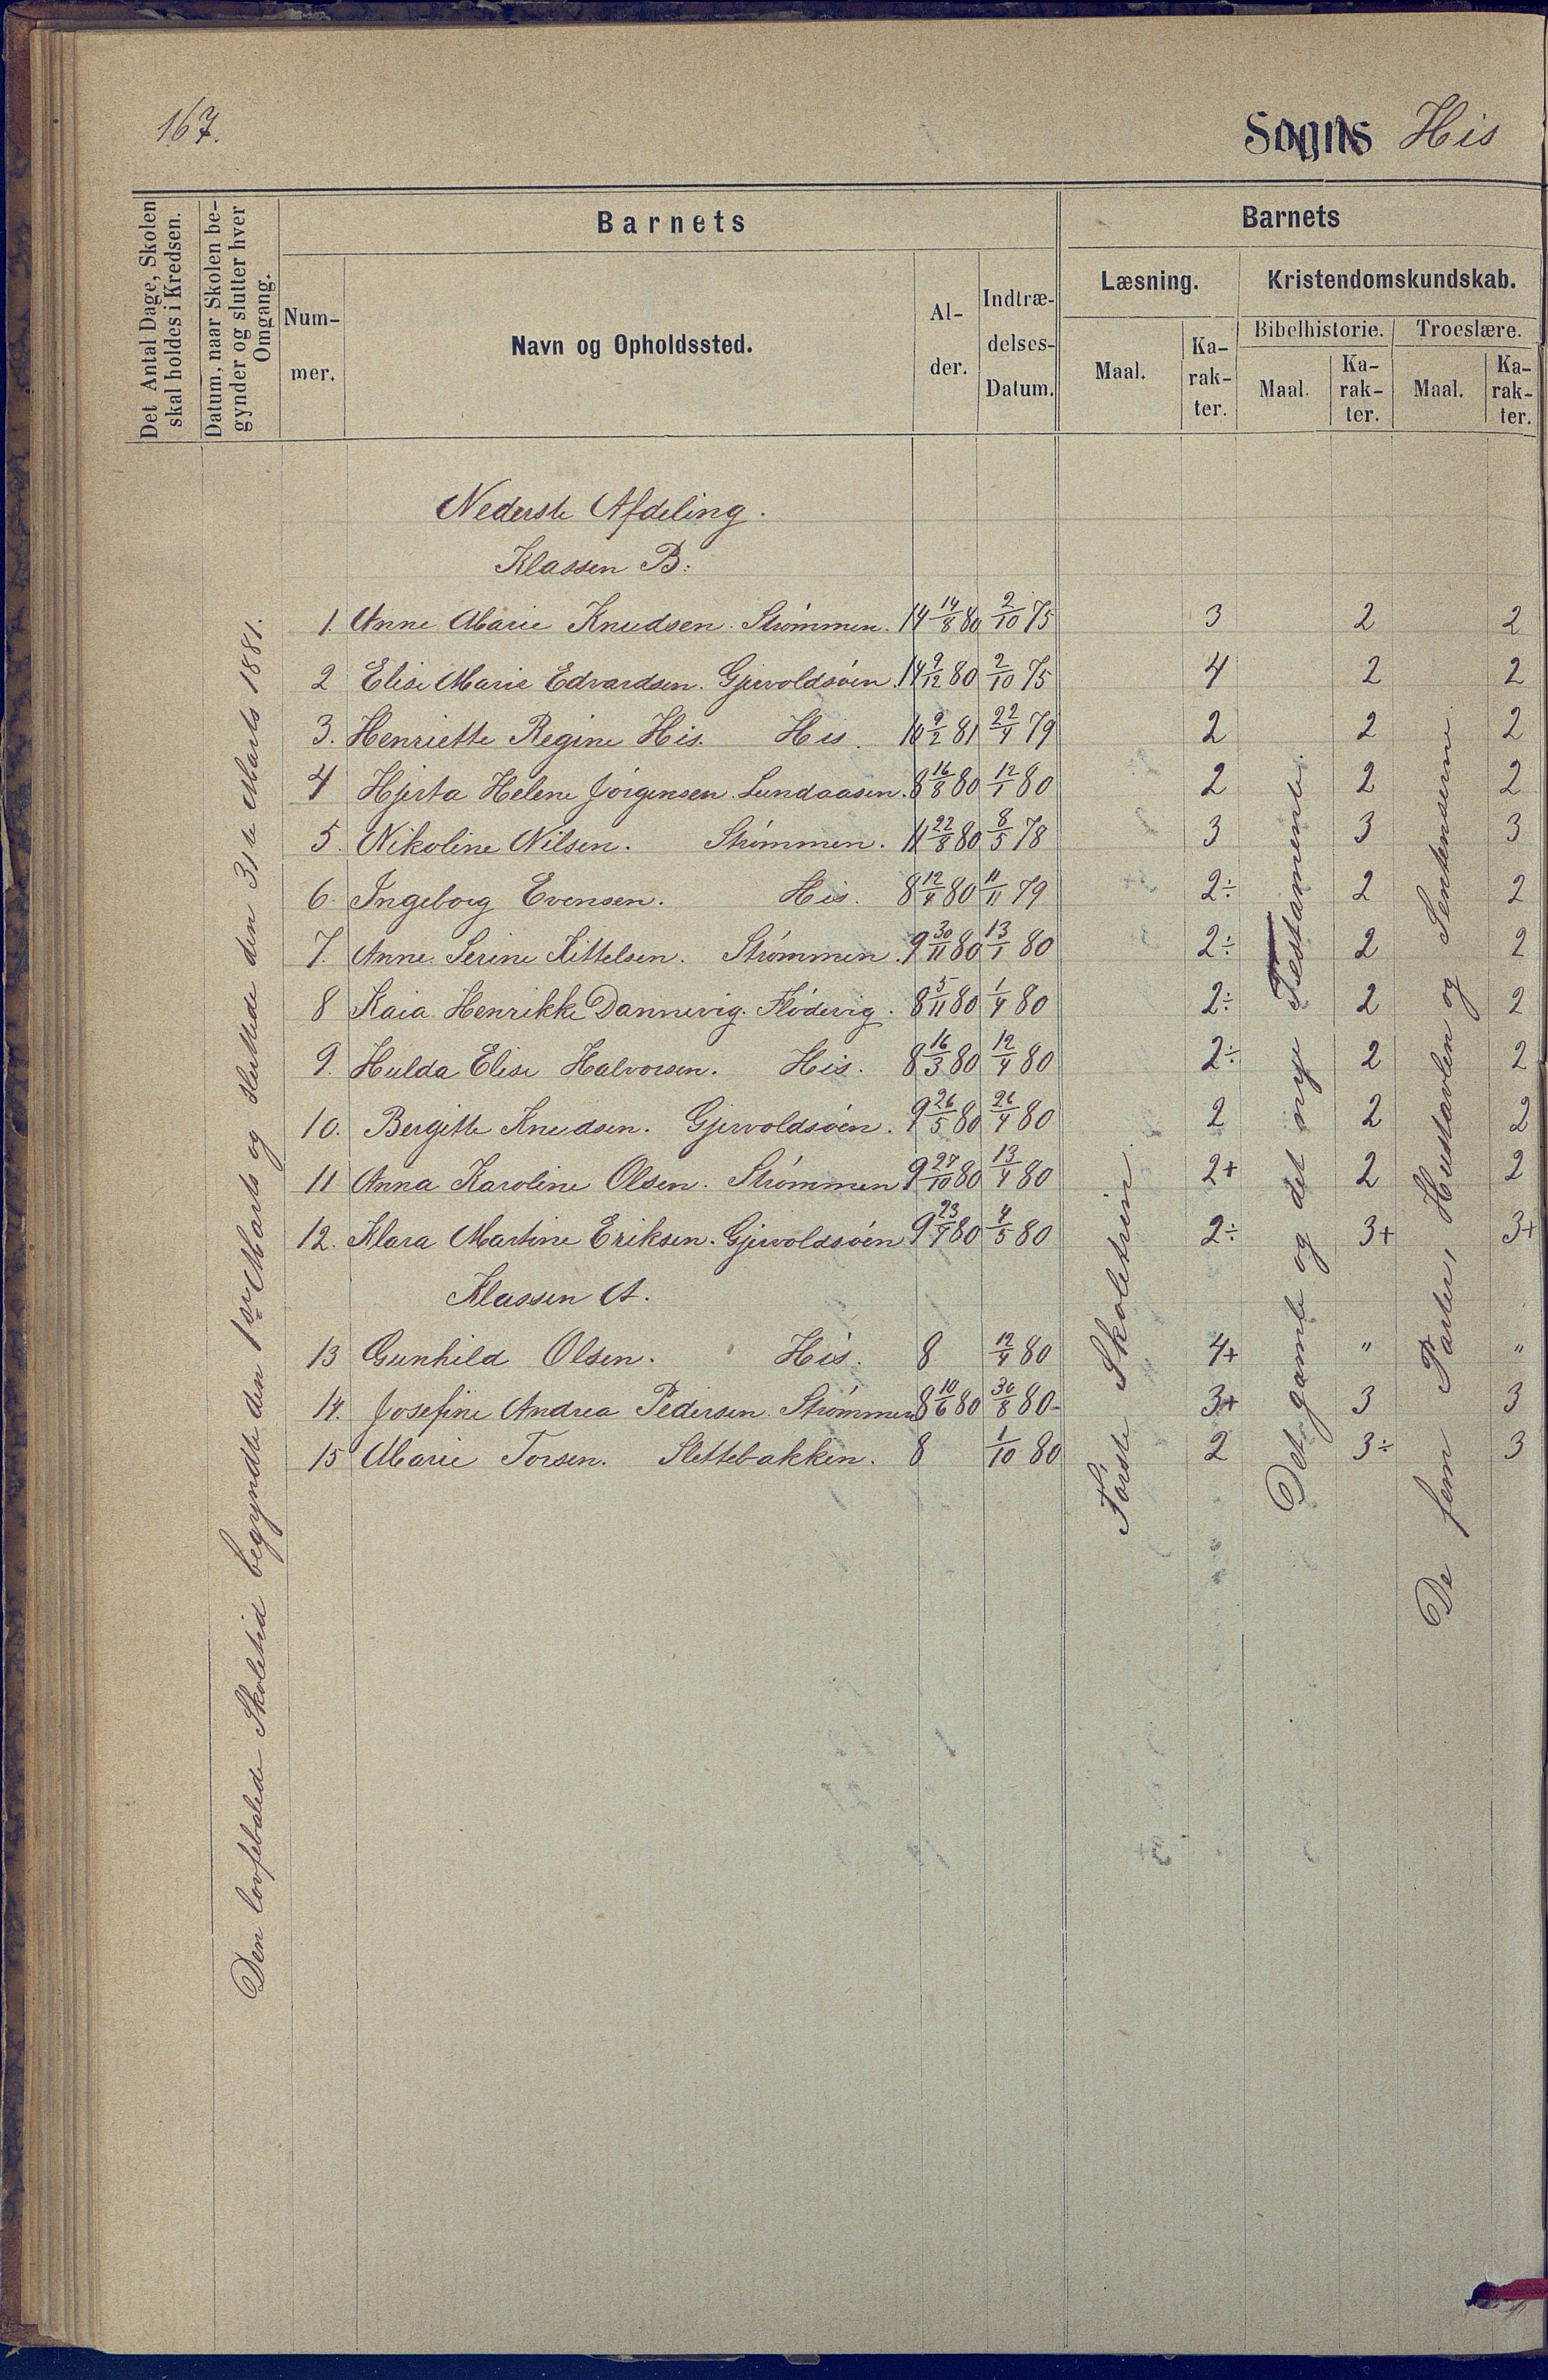 167.
Sogns His
Det Antal Dage, Skolen
skal holdes i Kredsen.
Datum, naar Skolen be-
gynder og slutter hver
Omgang.
Barnets
Num-
mer.
Navn og Opholdssted.
Al-
der.
Indtræ-
delses-
Datum.
Barnets
Læsning.
Maal.
Ka-
rak-
ter.
Kristendomskundskab.
Bibelhistorie.
Maal.
Ka-
rak-
ter.
Troeslære.
Maal.
Ka-
rak-
ter.
Den lovbefalede Skoletid begyndte den 1ste Marts og sluttede den 31te Marts 1881.
Nederste Afdeling.
Klassen B.
1. Anne Marie Knudsen. Strømmen. 14 14/8 80 2/10 75 3 2 2
2 Elise Marie Edvardsen. Gjervoldsøen. 14 9/12 80 2/10 75 4 2 2
3. Henriette Regine His. His. 10 9/2 81 22/4 79 2 2 2
4 Hjerta Helene Jørgensen Lundaasen. 8 16/8 80 12/1 80 2 2 2
5. Nikoline Nilsen. Strømmen. 11 22/8 80 8/5 78 3 3 3
6. Ingeborg Evensen. His. 8 12/4 80 11/11 79 2÷ 2 2
7. Anne Serine Kittelsen. Strømmen. 9 30/11 80 13/1 80 2÷ 2 2
8 Kaia Henrikke Dannevig. Flødevig. 8 5/11 80 1/4 80 2÷ 2 2
9. Hulda Elise Halvorsen. His. 8 16/3 80 12/4 80 2÷ 2 2
10. Bergitte Knudsen. Gjervoldsøen. 9 26/5 80 26/4 80 2 2 2
11 Anna Karoline Olsen. Strømmen 9 27/10 80 13/4 80 2+ 2 2
12. Klara Martine Eriksen. Gjervoldsøen 9 23/4 80 4/5 80 2÷ 3+ 3+
Klassen A.
13 Gunhild Olsen. His. 8 12/4 80 4+ " "
14. Josefine Andrea Pedersen. Strømmen 8 10/6 80 30/8 80- 3+ 3 3
15 Marie Torsen. Slettebakken. 8 1/10 80 2 3÷ 3
Første Skoletrin.
Det gamle og det nye Testamente.
De fem Parter, Hustavlen og Sentenserne.